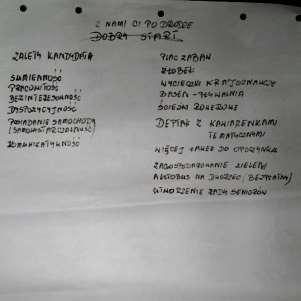 Z NAMI CI PO DRODZE
DOBRY START
ZALETY KANDYDATA
SUMIENNOŚĆ
PRACOWITOŚĆ
BEZINTERESOWNOŚĆ
DYSPOZYCYJNOŚĆ
POSIADANIE SAMOCHODU
(SAMOWYSTARCZALNOŚĆ)
KOMUNIKATYWNOŚĆ
PLAC ZABAW
ŻŁOBEK
WYCIECZKI KRAJOZNAWCZE
BASEN - PŁYWANIA
ŚCIEŻKI ROWEROWE
DEPTAK Z KAWIARENKAMI
TEMATYCZNYMI
WIĘCEJ ŁAWEK DO ODPOCZYNKU
ZAGOSPODAROWANIE ZIELENI
AUTOBUS NA DWORZEC (BEZPŁATNY)
UTWORZENIE RADY SENIORÓW